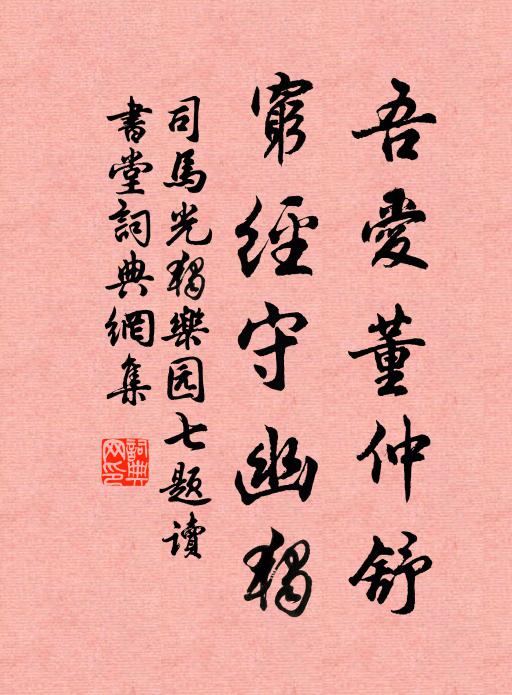 吾愛董仲舒
窮經守幽獨
司馬光獨樂园七题讀
書堂詞典網集
詞典网印